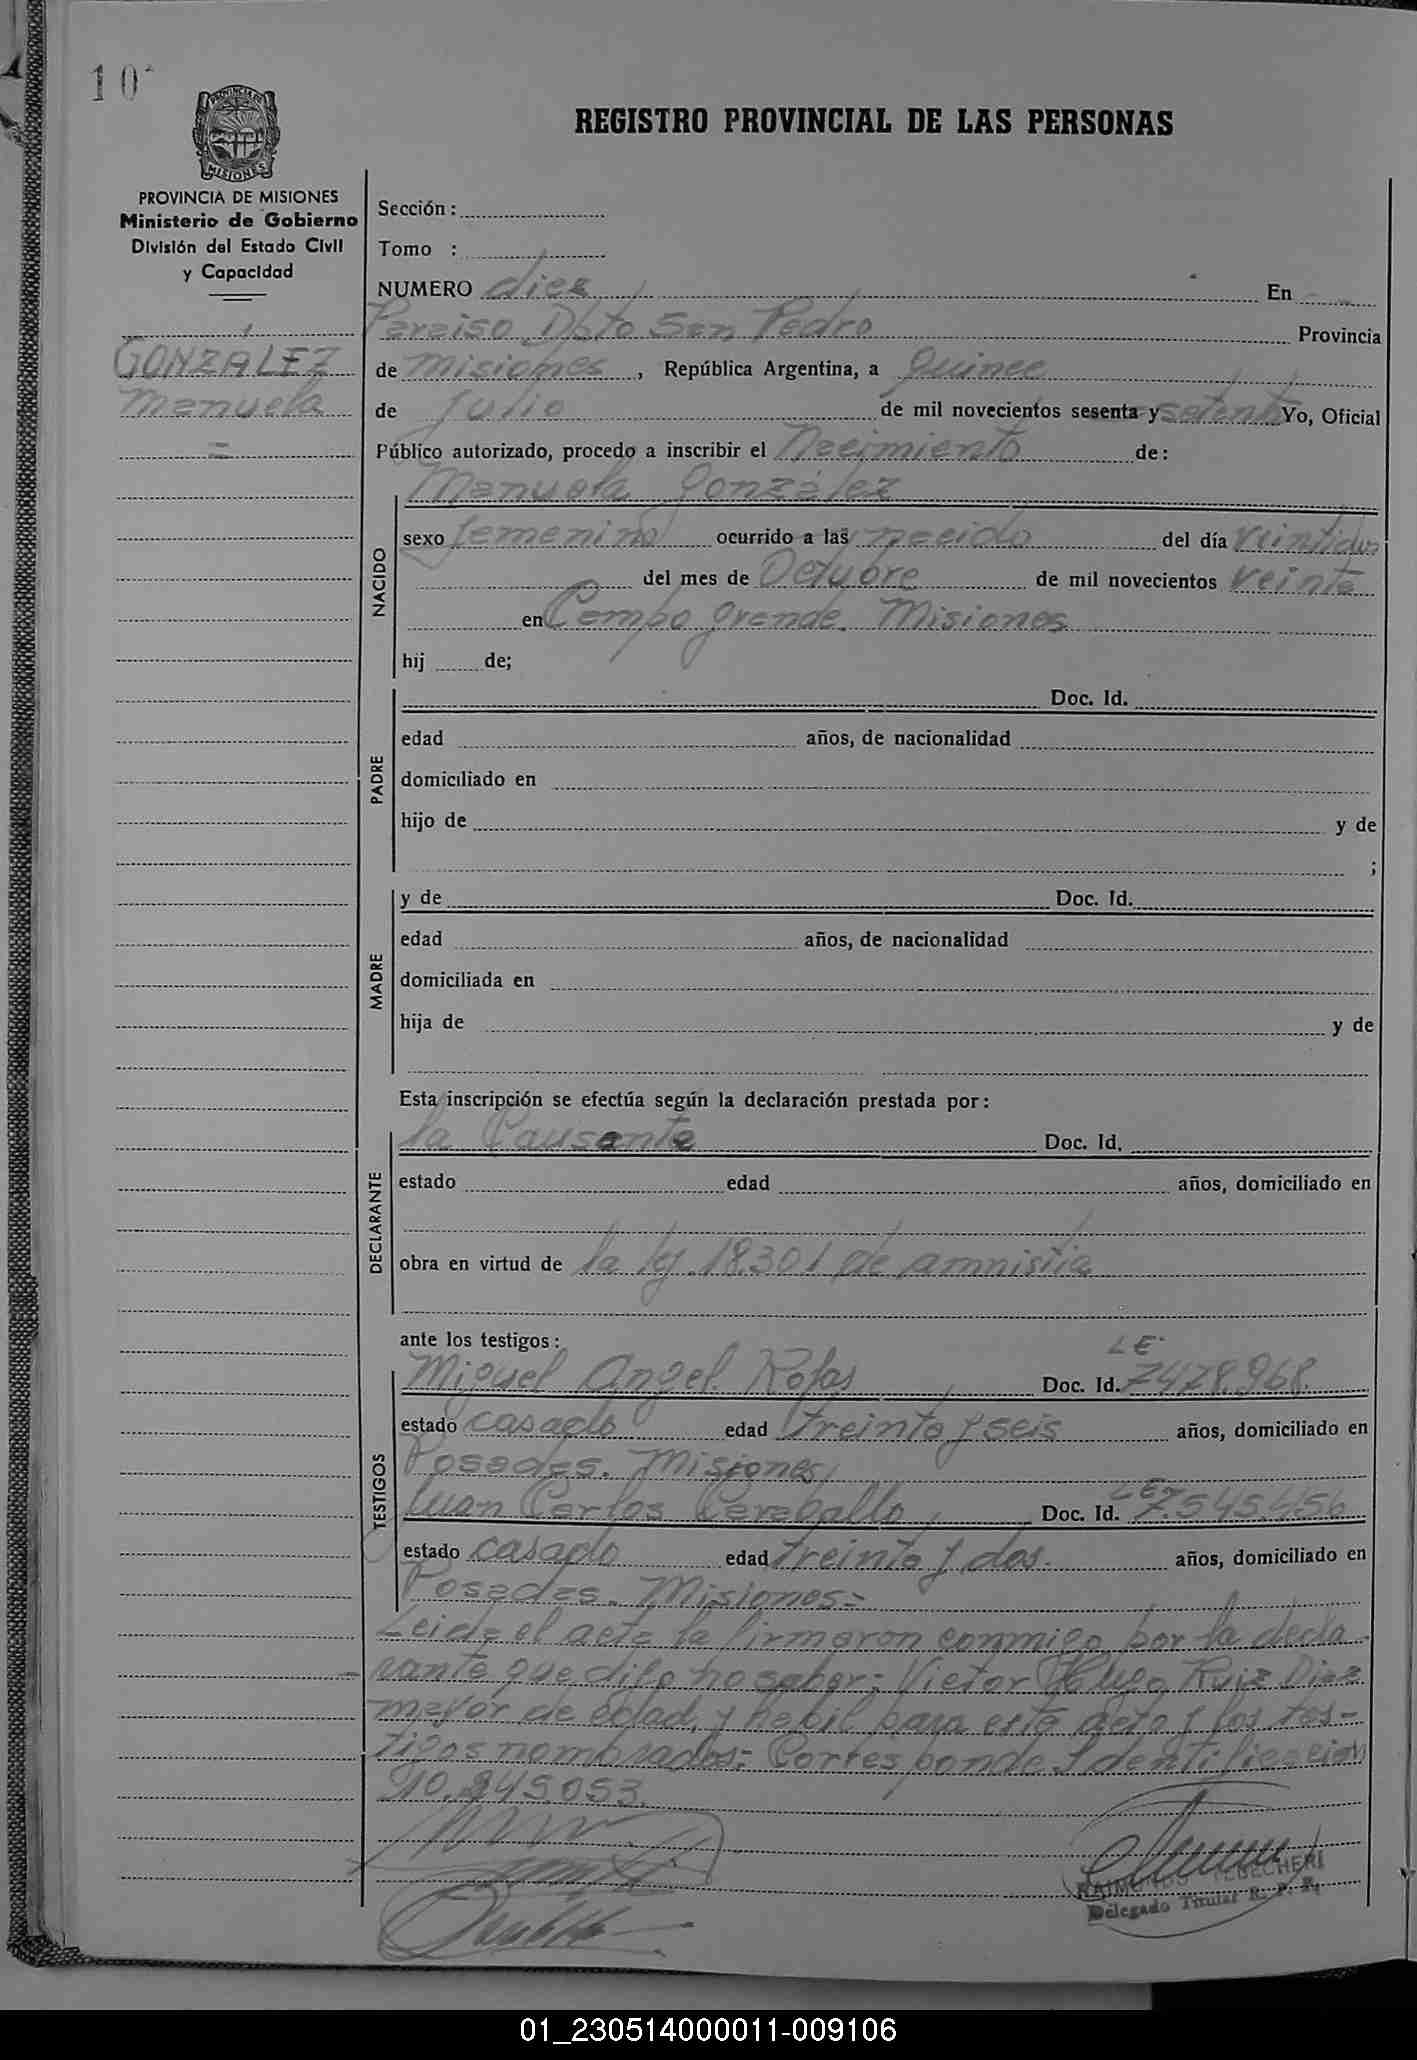 10
REGISTRO PROVINCIAL DE LAS PERSONAS
PROVINCIA DE
MISIONES
PROVINCIA DE MISIONES
Ministerio de Gobierno
División del Estado Civil
y Capacidad
GONZÁLEZ
Manuela
=
Sección :
Tomo :
NUMERO diez En
Paraiso Dpto San Pedro Provincia
de Misiones , República Argentina, a quince
de Julio de mil novecientos sesenta y setenta Yo, Oficial
Público autorizado, procedo a inscribir el Nacimiento de:
Manuela González
NACIDO
sexo femenino ocurrido a las nacido del día veintidos
del mes de Octubre de mil novecientos veinte
en Campo grande. Misiones
hij de;
PADRE
Doc. Id.
edad años, de nacionalidad
domiciliado en
hijo de y de
;
MADRE
y de Doc. Id.
edad años, de nacionalidad
domiciliada en
hija de y de
Esta inscripción se efectúa según la declaración prestada por:
DECLARANTE
la Causante Doc. Id.
estado edad años, domiciliado en
obra en virtud de la ley 18.301 de amnistia
ante los testigos:
TESTIGOS
Miguel Angel Rojas Doc. Id. LE 7478.968
estado casado edad treinta y seis años, domiciliado en
Posadas. Misiones
Juan Carlos Caraballo Doc. Id. LE 7.545.456
estado casado edad treinta y dos. años, domiciliado en
Posadas. Misiones=
Leida el acta la firmaron conmigo por la decla-
rante que dijo no saber: Victor Hugo Ruiz Diaz
mayor de edad, y habil para este acto y los tes-
tigos nombrados= Corresponde Identificacion
10.845.053.
RAIMUNDO TEBECHERI
Delegado Titular R. P. P.
01_230514000011-009106